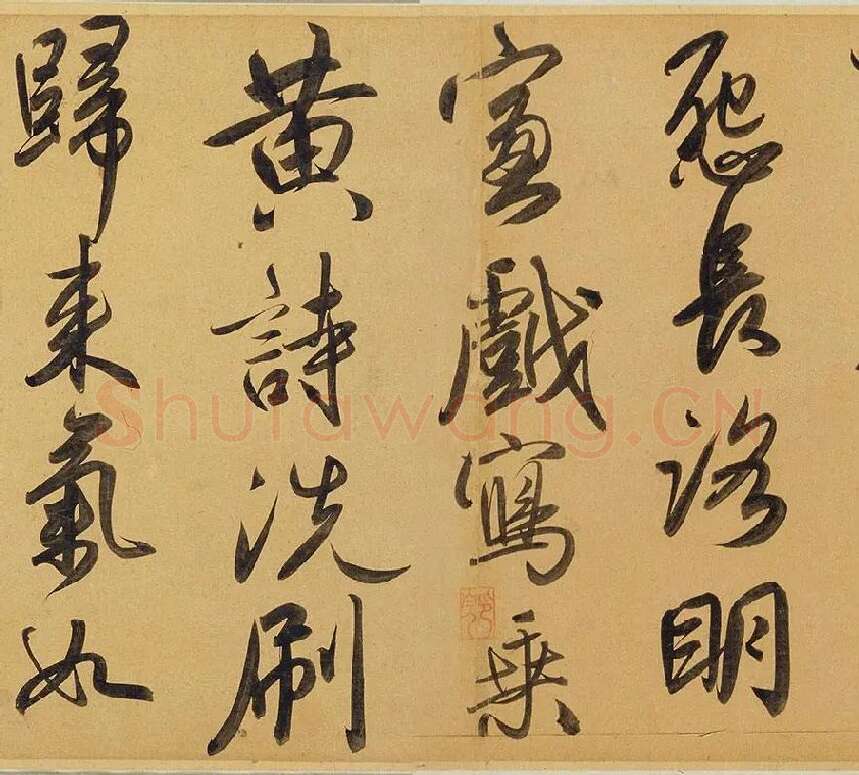 怨長洛明
窗戲寫乘
黃詩洗刷
歸来氣如
Shufawang.CN